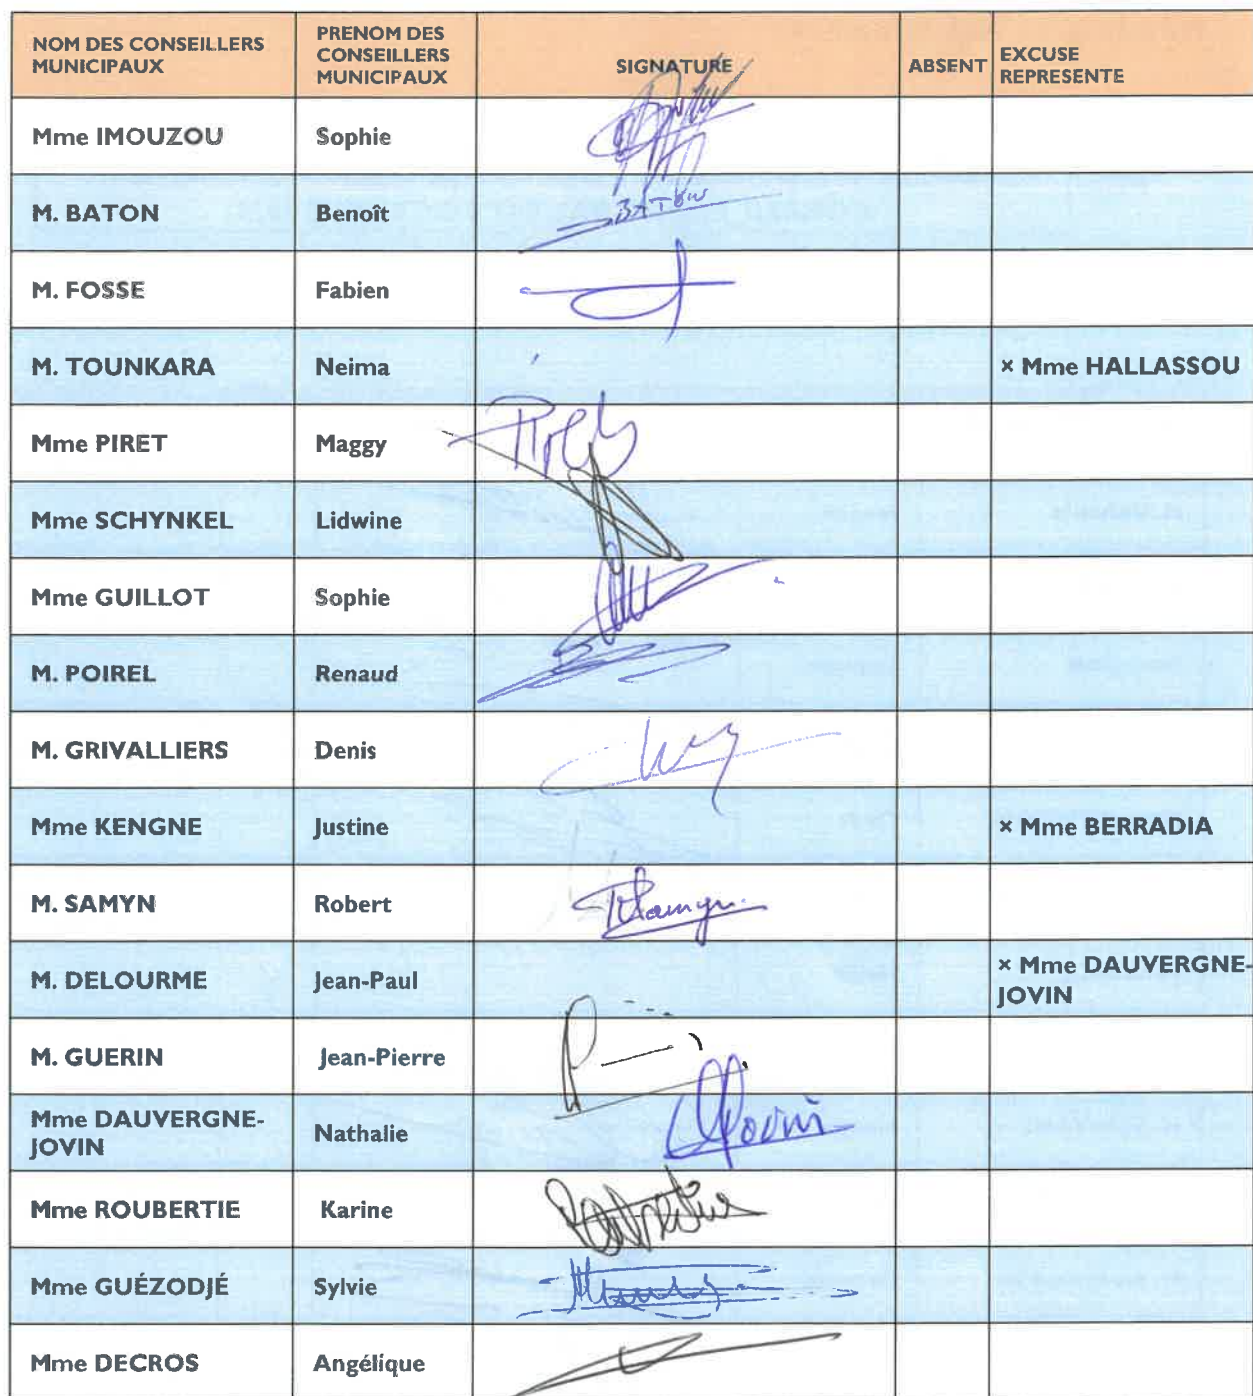 NOM DES CONSEILLERS MUNICIPAUX | PRENOM DES CONSEILLERS MUNICIPAUX | SIGNATURE | ABSENT | EXCUSE REPRESENTE
Mme IMOUZOU | Sophie
M. BATON | Benoît | BATON
M. FOSSE | Fabien
M. TOUNKARA | Neima | × Mme HALLASSOU
Mme PIRET | Maggy
Mme SCHYNKEL | Lidwine
Mme GUILLOT | Sophie
M. POIREL | Renaud
M. GRIVALLIERS | Denis
Mme KENGNE | Justine | × Mme BERRADIA
M. SAMYN | Robert | Samyn
M. DELOURME | Jean-Paul | × Mme DAUVERGNE-JOVIN
M. GUERIN | Jean-Pierre
Mme DAUVERGNE-JOVIN | Nathalie
Mme ROUBERTIE | Karine
Mme GUÉZODJÉ | Sylvie
Mme DECROS | Angélique